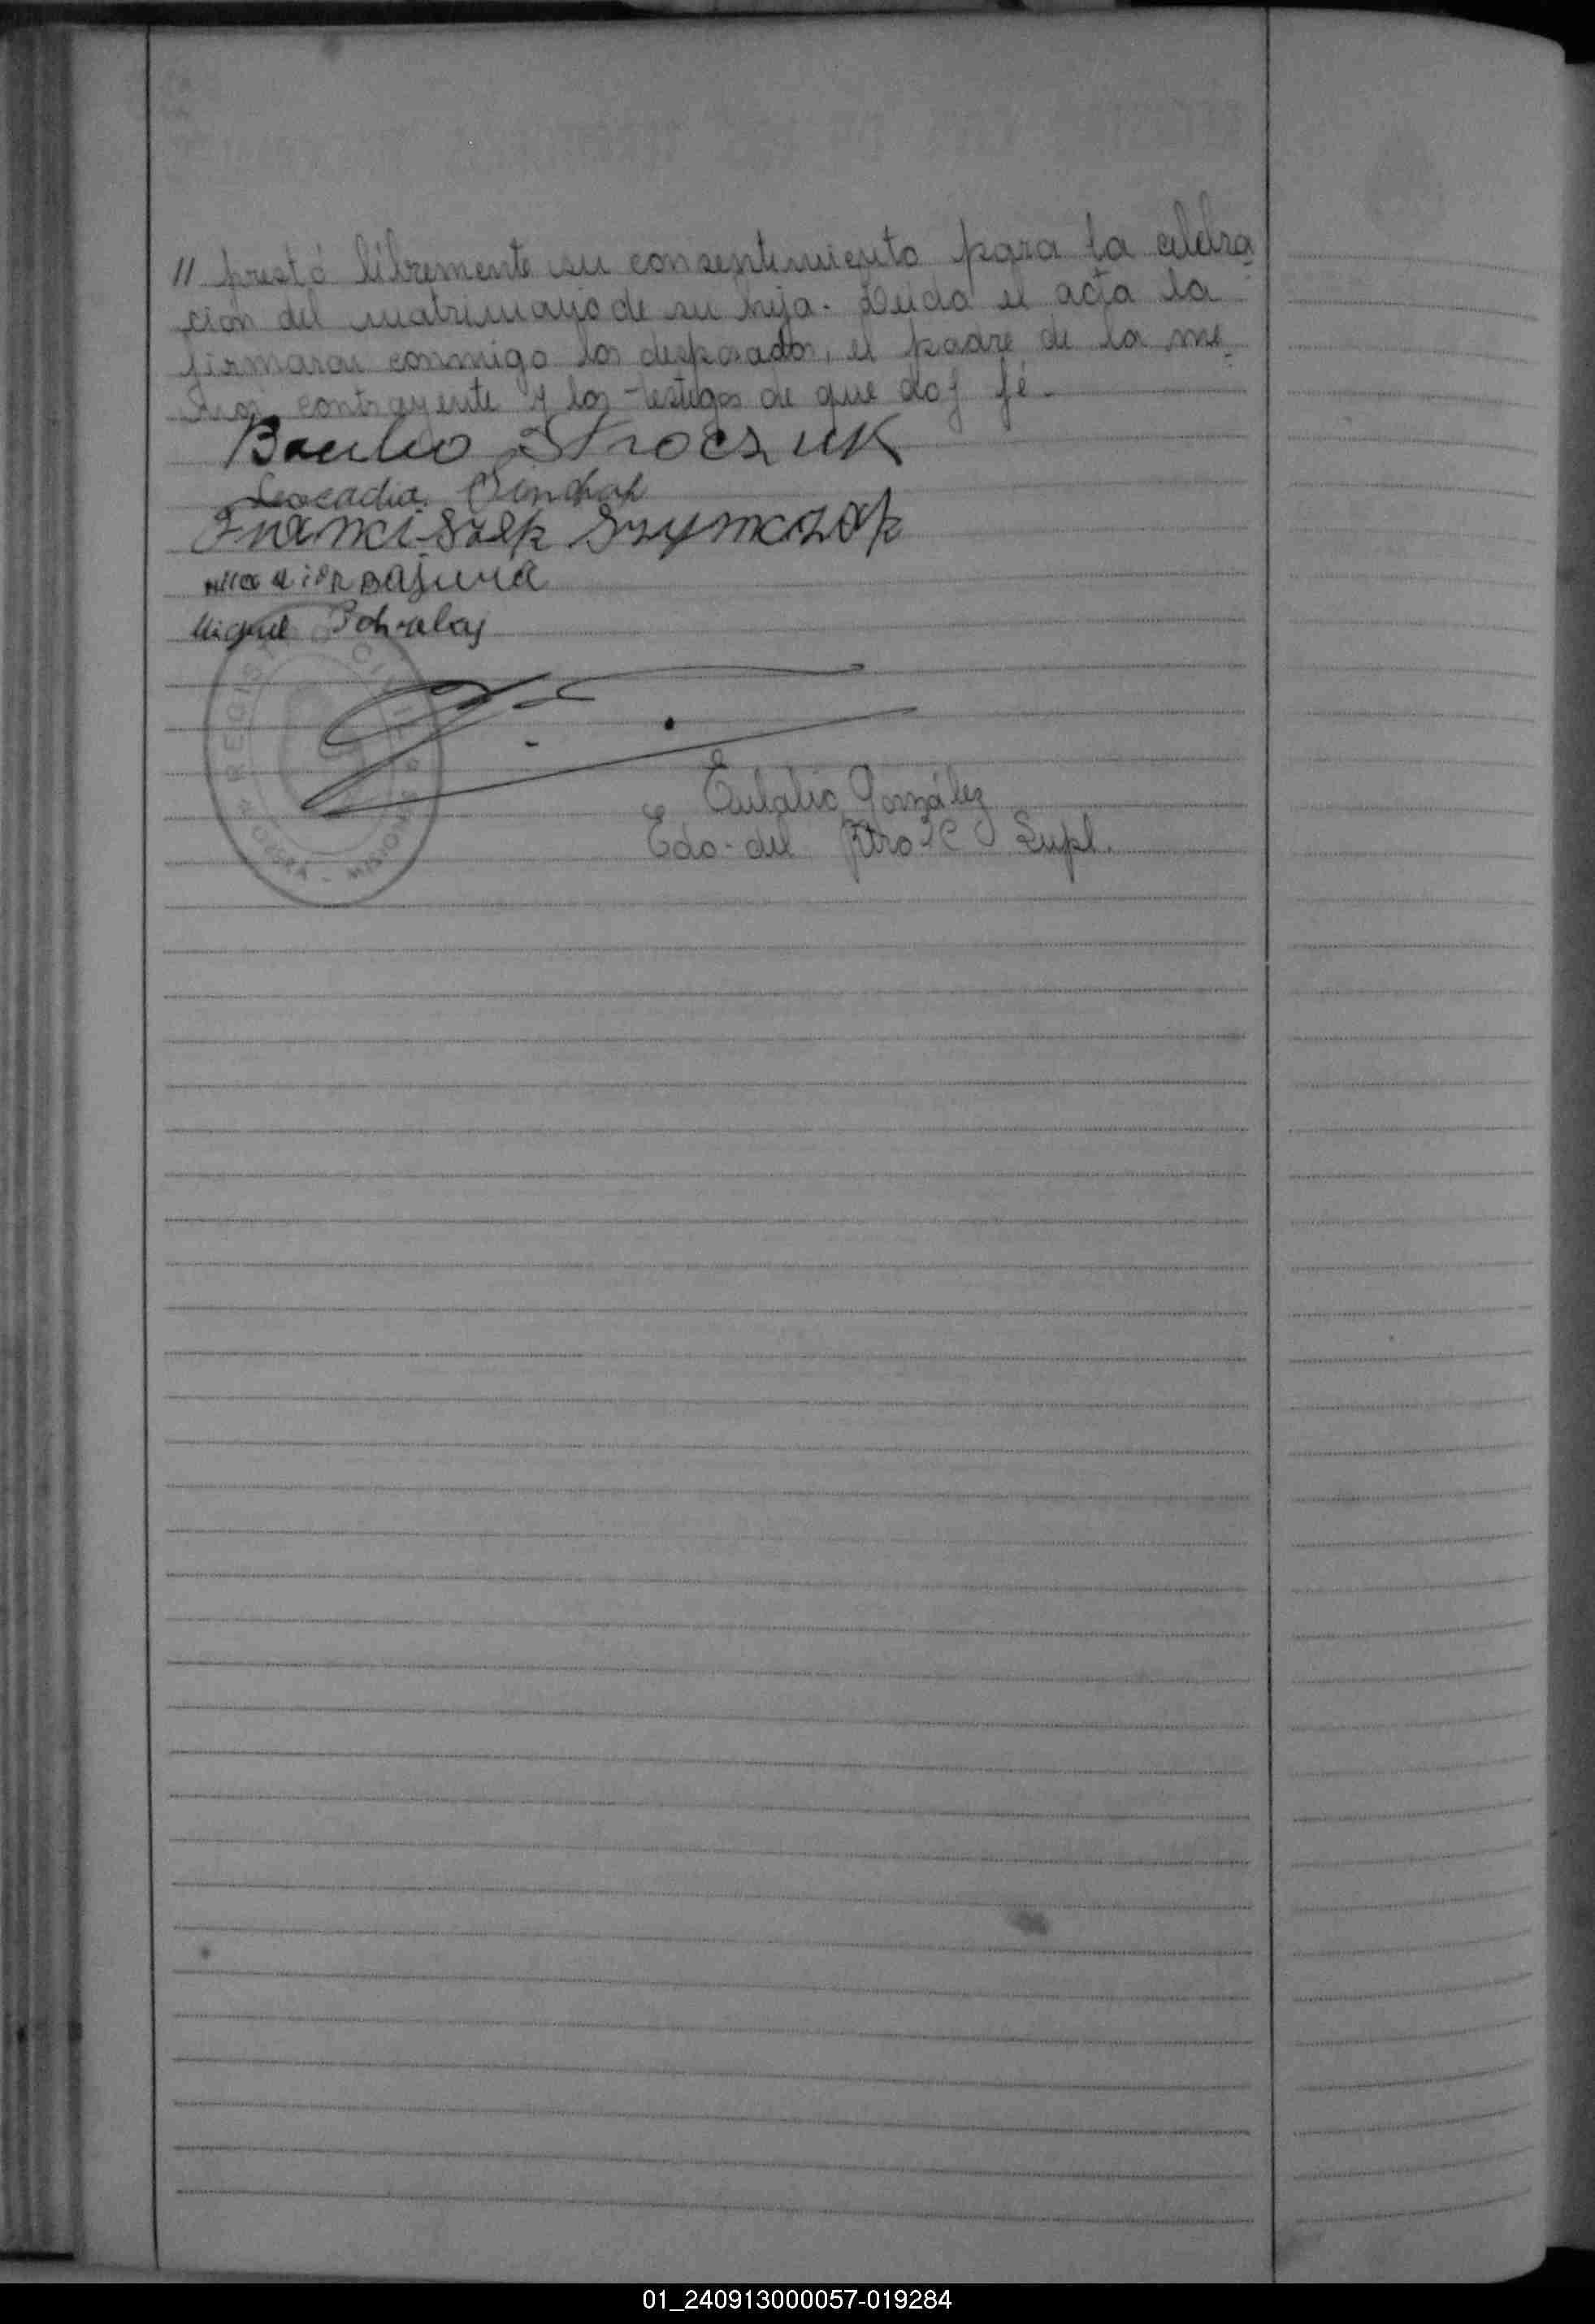 // prestó libremente su consentimiento para la celebra
ción del matrimonio de su hija. Leída el acta la
firmaron conmigo los desposados, el padre de la me
nor contrayente y los testigos de que doy fé.
Basilio Stroczuk
Leocadia
Franciszek Szymczak
Miguel
REGISTRO CIVIL
MISIONES
Eulalio González
Edo. del Rtro C Supl.
01_240913000057-019284